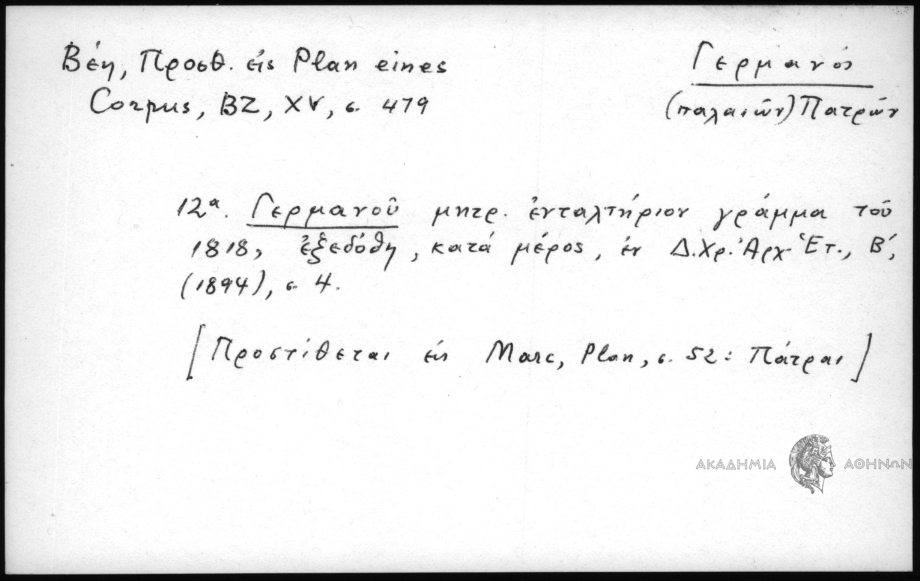 Βέη, Προσθ. εἰς Plan eines
Corpus, BZ, XV, σ. 479
Γερμανός
(παλαιῶν) Πατρῶν
12α. Γερμανοῦ μητρ. ἐνταλτήριον γράμμα τοῦ
1818, ἐξεδόθη, κατά μέρος, ἐν Δ.Χρ.Ἀρχ Ἑτ., Β΄,
(1894), σ. 4.
[Προστίθεται εἰς Marc, Plan, σ. 52: Πάτραι]
ΑΚΑΔΗΜΙΑ ΑΘΗΝΩΝ